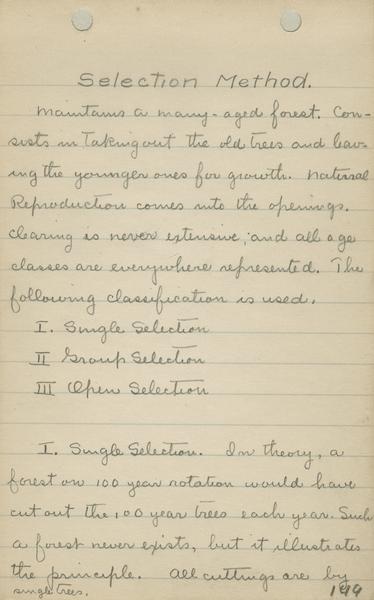 Selection Method.
Maintains a many-aged forest. Con-
sists in taking out the old trees and leav-
ing the younger ones for growth. Natural
Reproduction comes into the openings.
Clearing is never extensive, and all age
classes are everywhere represented. The
following classification is used.
I. Single Selection
II Group Selection
III Open Selection
I. Single Selection. In theory, a
forest on 100 year rotation would have
cut out the 100 year trees each year. Such
a forest never exists, but it illustrates
the principle. All cuttings are by
single trees.
199